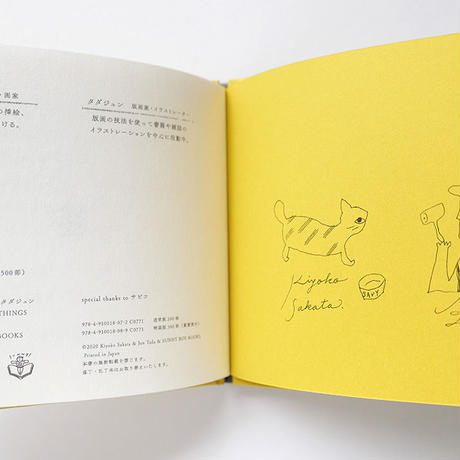 画家
の挿絵、
ける。
タダジュン 版画家・イラストレーター
版画の技法を使って書籍や雑誌の
イラストレーションを中心に活動中。
500部)
タダジュン
THINGS
BOOKS
special thanks to サビコ
978-4-910018-97-2 C0771 通常版 300部
978-4-910018-98-9 C0771 特装版 200部
©2020 Kiyoko Sakata & Jun Tada & SUNNY BOY BOOKS,
Printed in Japan
本書の無断転載を禁じます。
落丁・乱丁本はお取り替えいたします。
Kiyoko
Sakata.